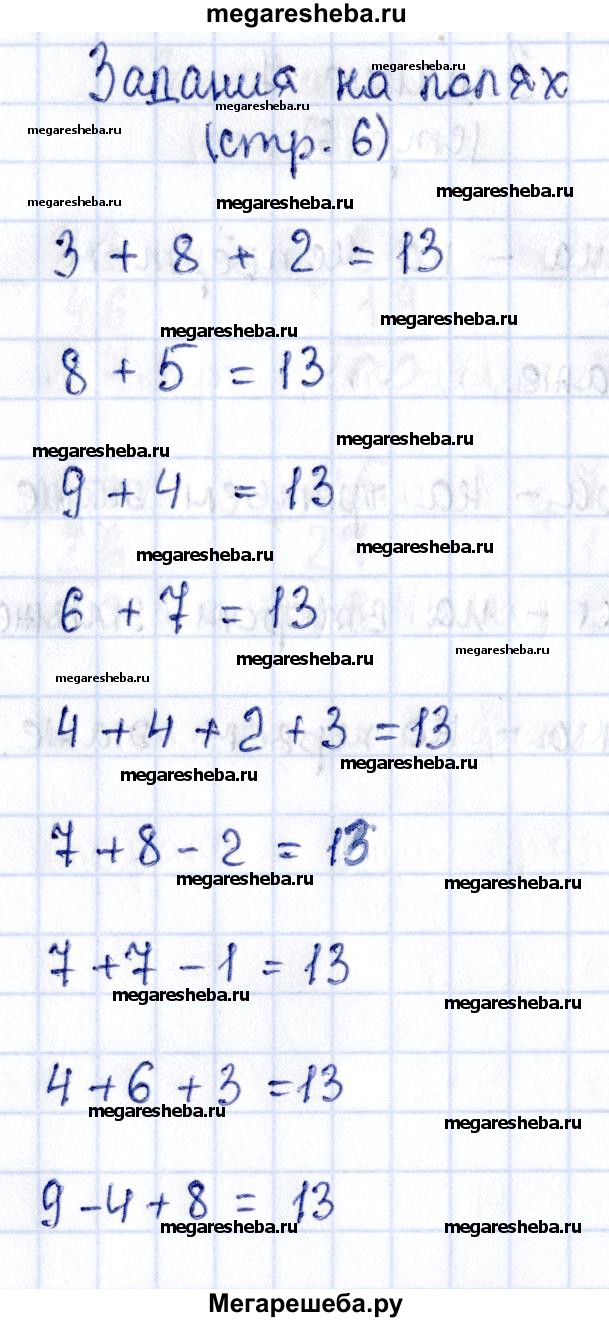 megaresheba.ru
Задания на полях
megaresheba.ru
megaresheba.ru
megaresheba.ru
(стр. 6)
megaresheba.ru
megaresheba.ru
megaresheba.ru
3 + 8 + 2 = 13
megaresheba.ru
megaresheba.ru
8 + 5 = 13
megaresheba.ru
megaresheba.ru
9 + 4 = 13
megaresheba.ru
megaresheba.ru
6 + 7 = 13
megaresheba.ru
megaresheba.ru
megaresheba.ru
4 + 4 + 2 + 3 = 13
megaresheba.ru
megaresheba.ru
7 + 8 - 2 = 13
megaresheba.ru
megaresheba.ru
7 + 7 - 1 = 13
megaresheba.ru
megaresheba.ru
4 + 6 + 3 = 13
megaresheba.ru
megaresheba.ru
9 - 4 + 8 = 13
megaresheba.ru
megaresheba.ru
Мегарешеба.ру